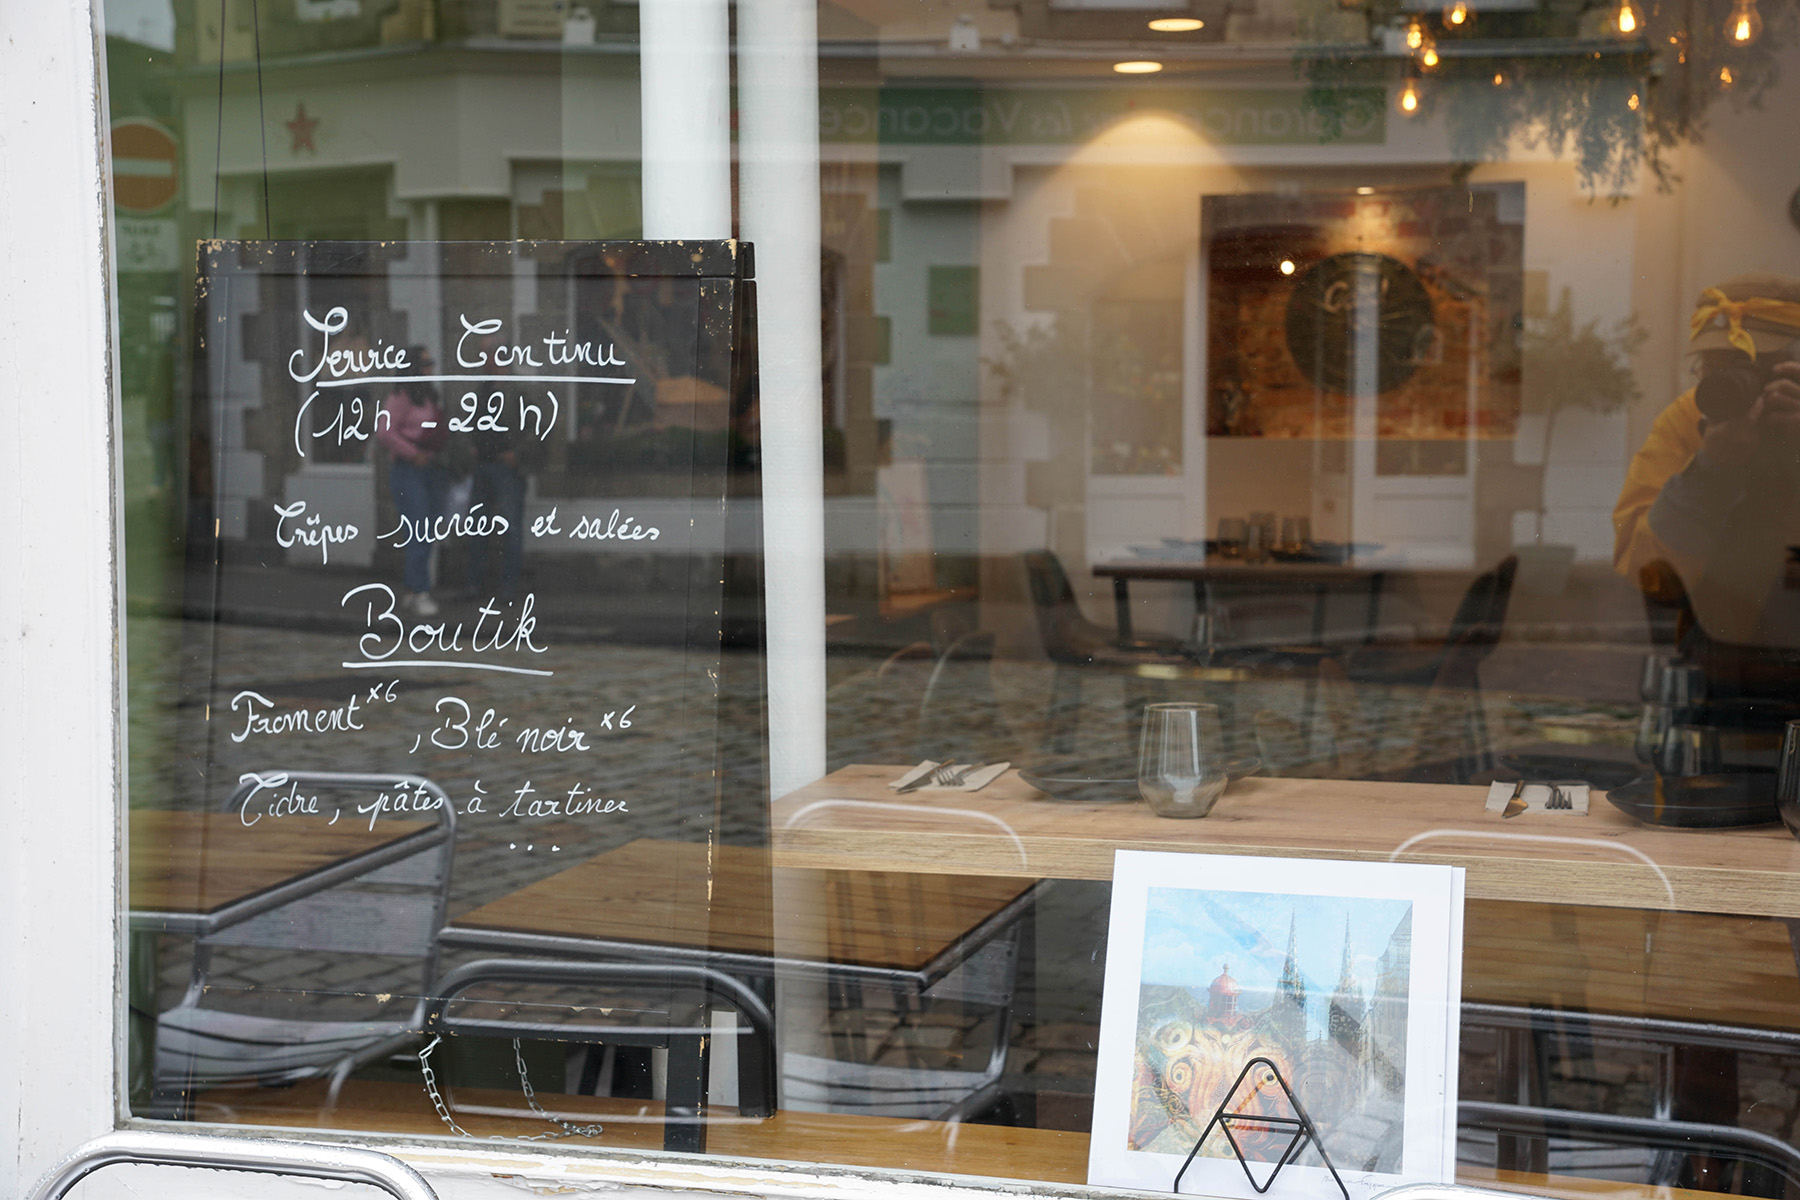 Service Continu
(12h - 22h)
Crêpes sucrées et salées
Boutik
Froment x6, Blé noir x6
Cidre, pâtes à tartiner
...
Garance les Vacances